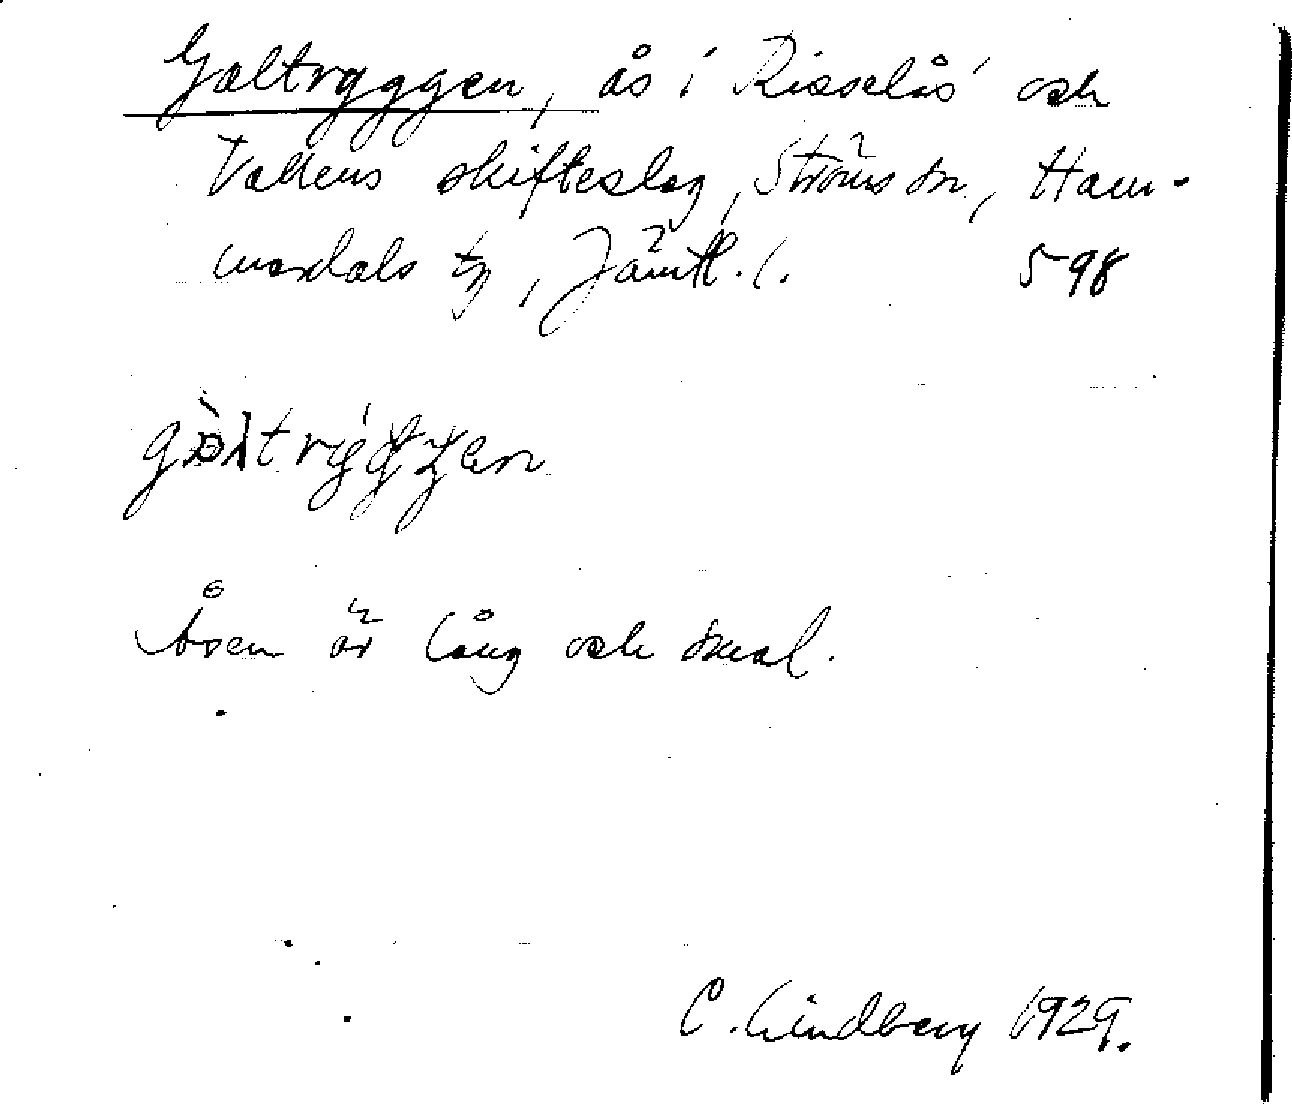 Galtryggen, ås i Risselås och
Vallens skifteslag, Ströms sn, Ham-
merdals tg, Jämtl. l. 598
Åsen är lång och smal.
C. Lindberg 1929.